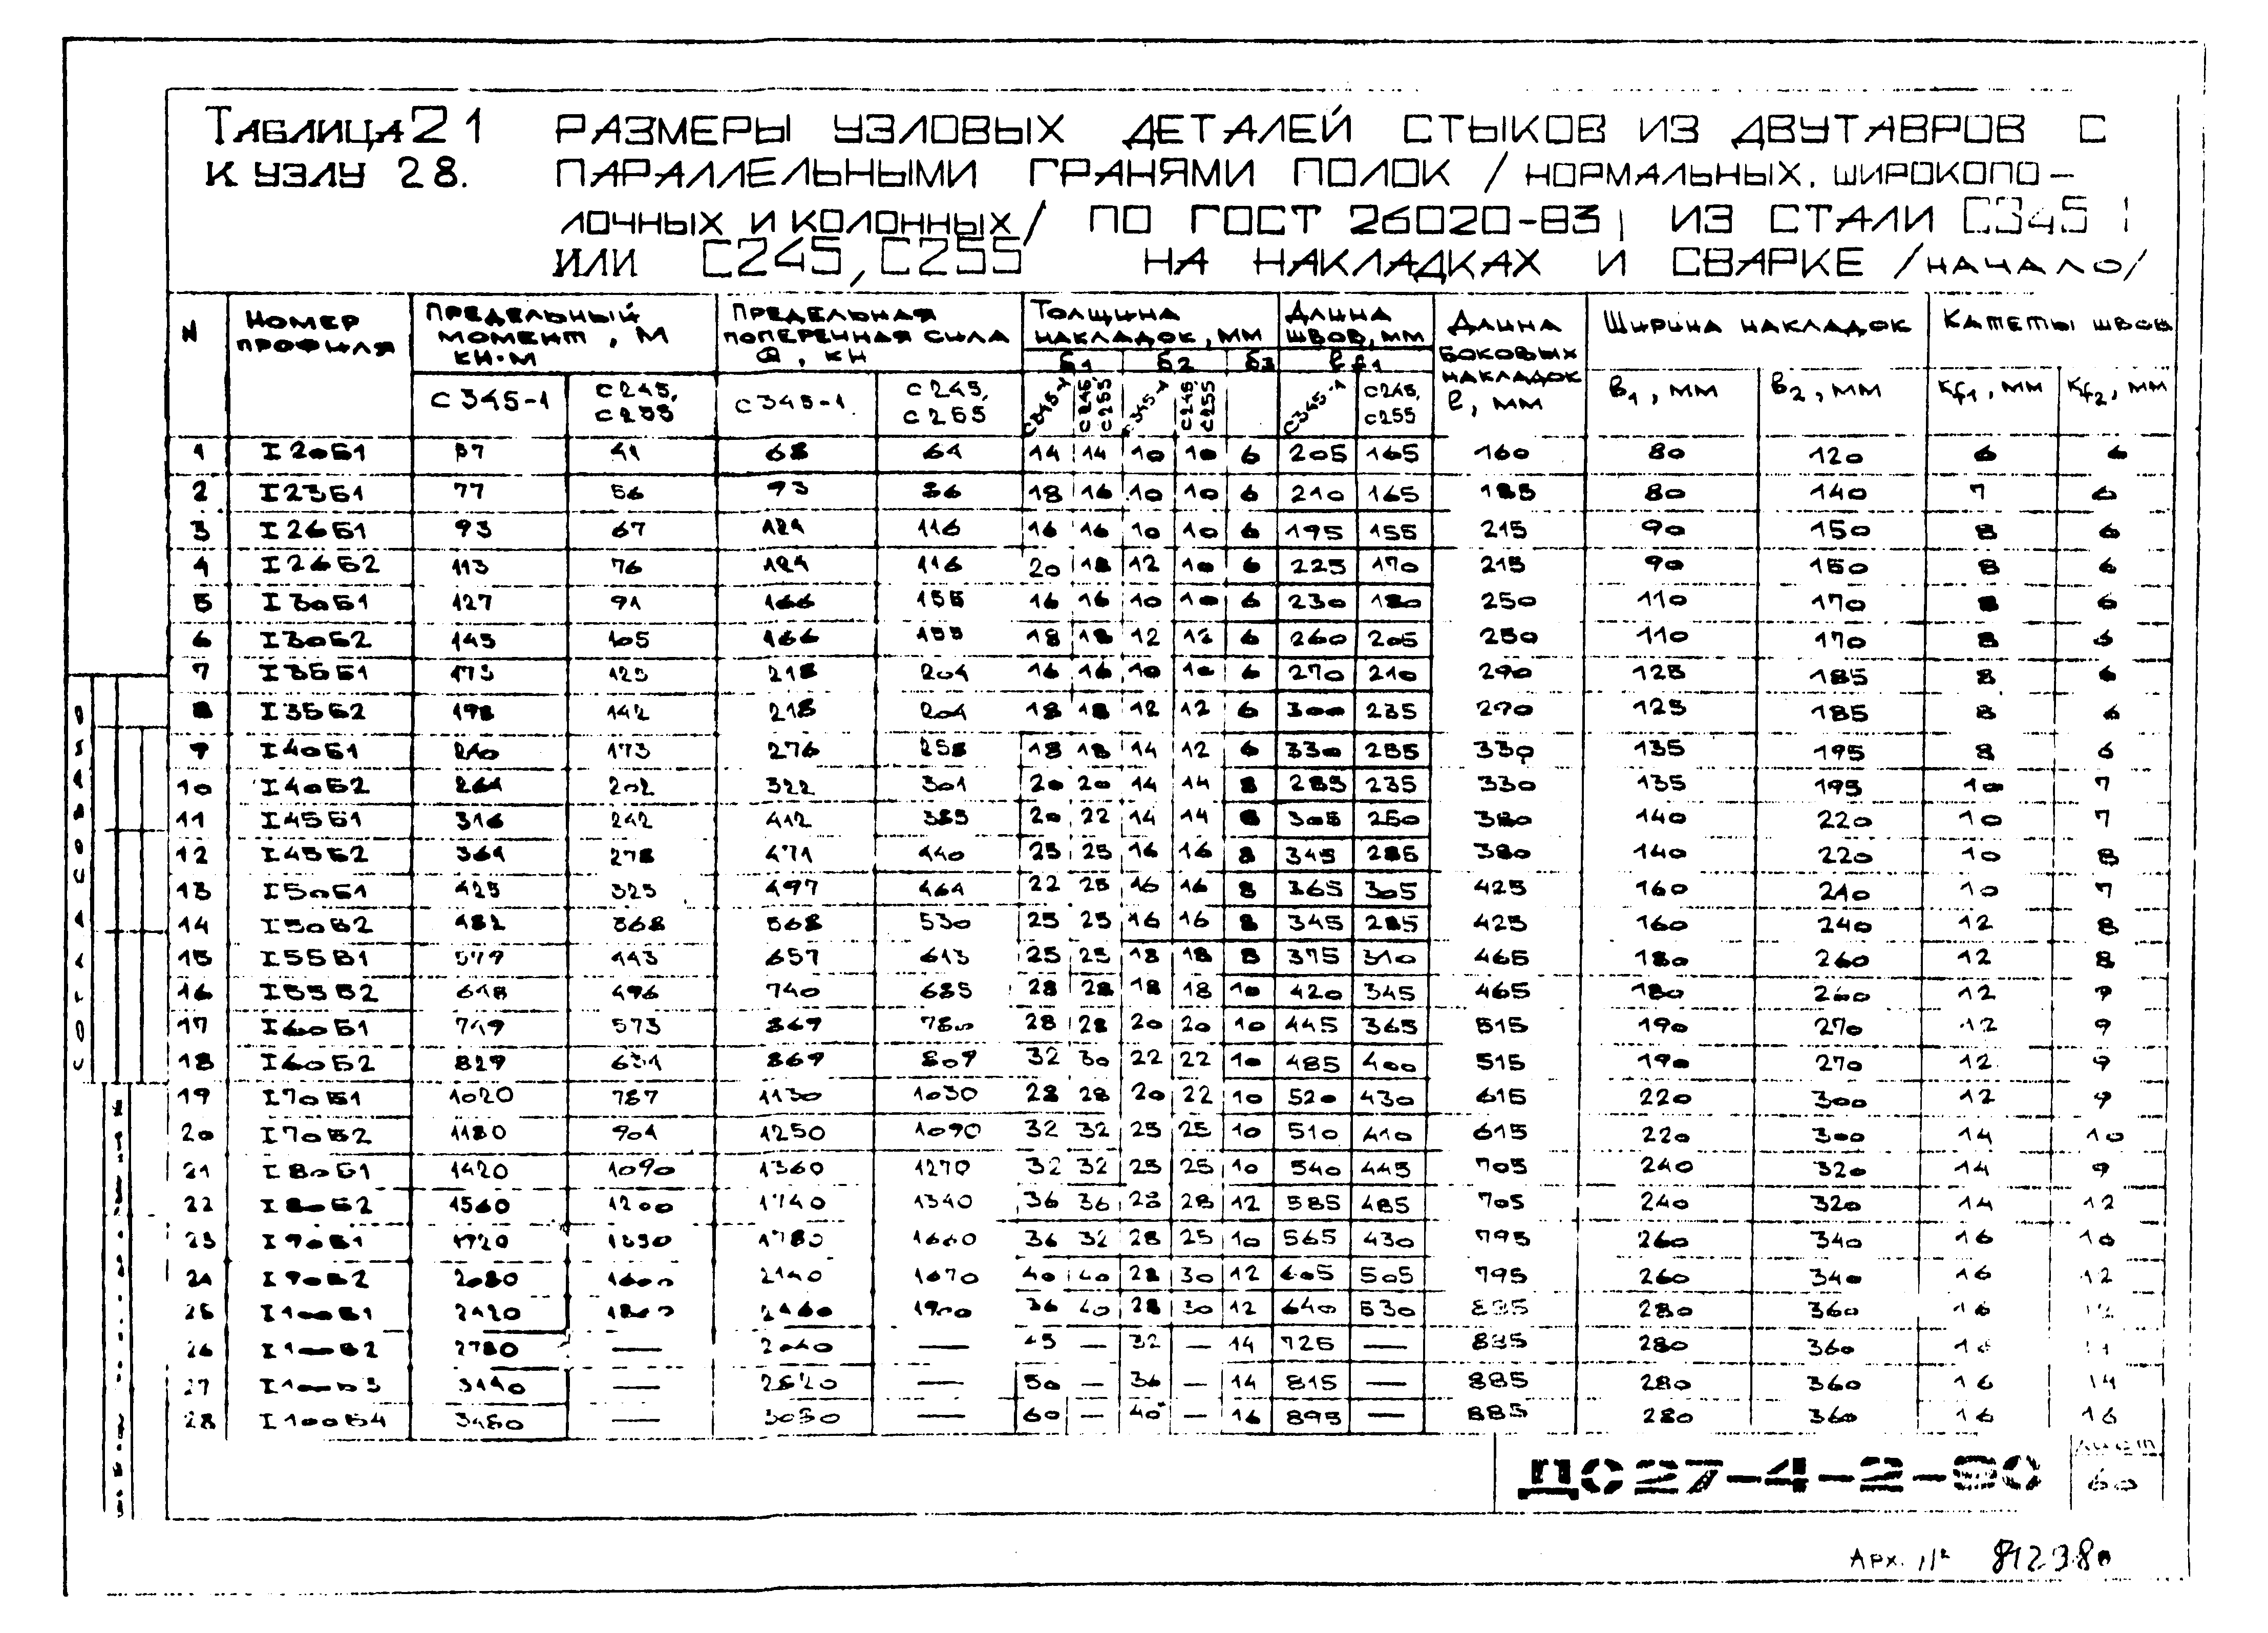 Таблица 21 РАЗМЕРЫ УЗЛОВЫХ ДЕТАЛЕЙ СТЫКОВ ИЗ ДВУТАВРОВ С
К УЗЛУ 28. ПАРАЛЛЕЛЬНЫМИ ГРАНЯМИ ПОЛОК / НОРМАЛЬНЫХ, ШИРОКОПО-
ЛОЧНЫХ И КОЛОННЫХ / ПО ГОСТ 26020-83, ИЗ СТАЛИ С345
ИЛИ С245, С255 НА НАКЛАДКАХ И СВАРКЕ /НАЧАЛО/
N Номер профиля Предельный момент, М кн·м Предельная поперечная сила Q, кн Толщина накладок, мм Длина швов, мм Длина боковых накладок ℓ, мм Ширина накладок Катеты швов
δ1 δ2 δ3 ℓf1
С345-1 С245, С255 С345-1 С245, С255 С345-1 С245 С255 С345-1 С245 С255 С345-1 С245, С255 в1, мм в2, мм Kf1, мм Kf2, мм
1 I20Б1 57 41 68 64 14 14 10 10 6 205 165 160 80 120 6 6
2 I23Б1 77 56 93 86 18 16 10 10 6 210 165 185 80 140 7 6
3 I26Б1 93 67 124 116 16 16 10 10 6 195 155 215 90 150 8 6
4 I26Б2 113 76 124 116 20 18 12 10 6 225 170 215 90 150 8 6
5 I30Б1 127 91 166 155 16 16 10 10 6 230 180 250 110 170 8 6
6 I30Б2 145 105 166 155 18 18 12 12 6 260 205 250 110 170 8 6
7 I35Б1 173 125 218 204 16 16 10 10 6 270 210 290 125 185 8 6
8 I35Б2 198 142 218 204 18 18 12 12 6 300 235 290 125 185 8 6
9 I40Б1 240 173 276 258 18 18 14 12 6 330 255 330 135 195 8 6
10 I40Б2 264 202 322 301 20 20 14 14 8 285 235 330 135 195 10 7
11 I45Б1 316 242 412 385 20 22 14 14 8 305 250 380 140 220 10 7
12 I45Б2 364 278 471 440 25 25 16 16 8 345 285 380 140 220 10 8
13 I50Б1 425 325 497 464 22 25 16 16 8 365 305 425 160 240 10 7
14 I50Б2 482 368 568 530 25 25 16 16 8 345 285 425 160 240 12 8
15 I55Б1 579 443 657 613 25 25 18 18 8 375 310 465 180 260 12 8
16 I55Б2 648 496 740 685 28 28 18 18 10 420 345 465 180 260 12 9
17 I60Б1 749 573 869 780 28 28 20 20 10 445 365 515 190 270 12 9
18 I60Б2 829 634 869 809 32 30 22 22 10 485 400 515 190 270 12 9
19 I70Б1 1020 787 1130 1030 28 28 20 22 10 520 430 615 220 300 12 9
20 I70Б2 1180 904 1250 1090 32 32 25 25 10 510 410 615 220 300 14 10
21 I80Б1 1420 1090 1360 1270 32 32 25 25 10 540 445 705 240 320 14 9
22 I80Б2 1560 1200 1740 1340 36 36 28 28 12 585 485 705 240 320 14 12
23 I90Б1 1720 1330 1780 1660 36 32 28 25 10 565 430 795 260 340 16 10
24 I90Б2 2080 1600 2140 1670 40 40 28 30 12 605 505 795 260 340 16 12
25 I100Б1 2420 2460 1900 36 40 28 30 12 640 530 885 280 360 16 12
26 I100Б2 2780 — — 45 — 32 — 14 725 — 885 280 360 16
27 I100Б3 3140 — 2620 — 50 — 36 — 14 815 — 885 280 360 16 14
28 I100Б4 3450 — 3050 — 60 — 40 — 16 895 — 885 280 360 16 16
ДС27-4-2-90
Лист
60
Арх. № 81238
СОГЛАСОВАНО